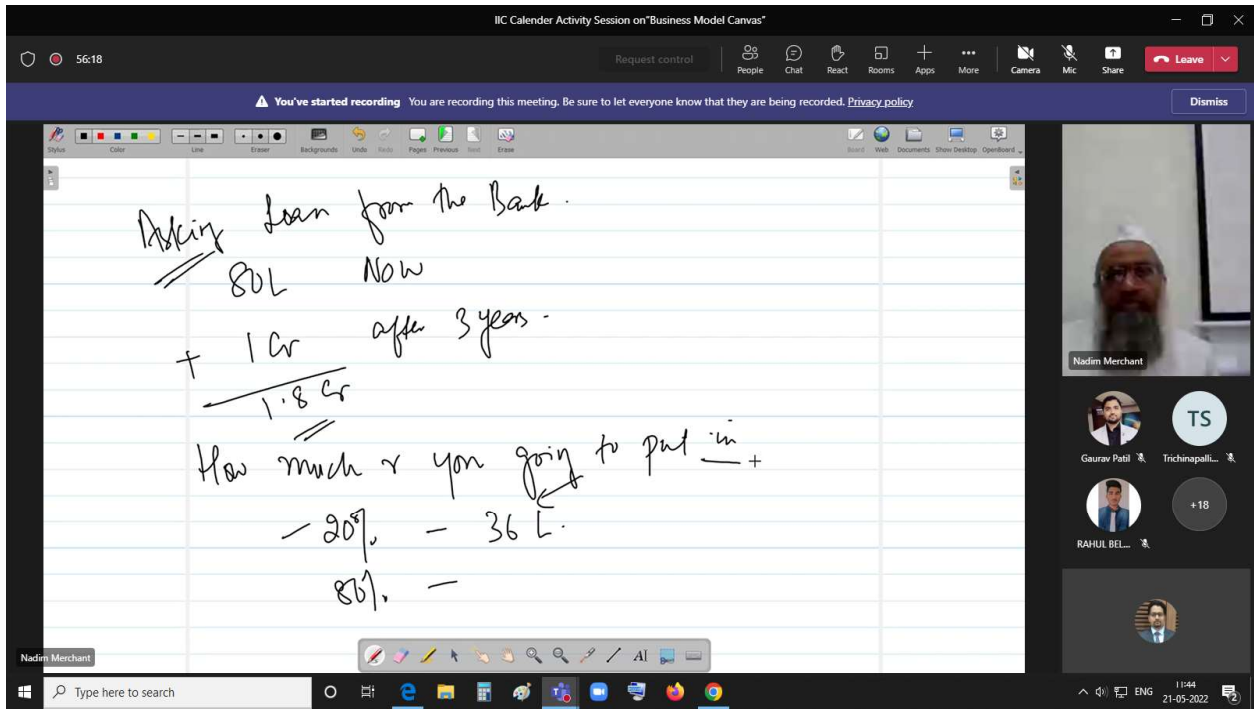 IIC Calender Activity Session on"Business Model Canvas"
56:18
Request control
People Chat React Rooms Apps More Camera Mic Share Leave
You've started recording You are recording this meeting. Be sure to let everyone know that they are being recorded. Privacy policy Dismiss
Stylus Color Line Eraser Backgrounds Undo Redo Pages Previous Next Erase Board Web Documents Show Desktop OpenBoard
Asking Loan from the Bank.
80L Now
+ 1 Cr after 3 years -
1.8 Cr
How much r you going to put in +
- 20% - 36 L.
80%. -
Nadim Merchant
Gaurav Patil
TS
Trichinapalli...
RAHUL BEL...
+18
AI
Nadim Merchant
Type here to search
ENG
11:44
21-05-2022
2